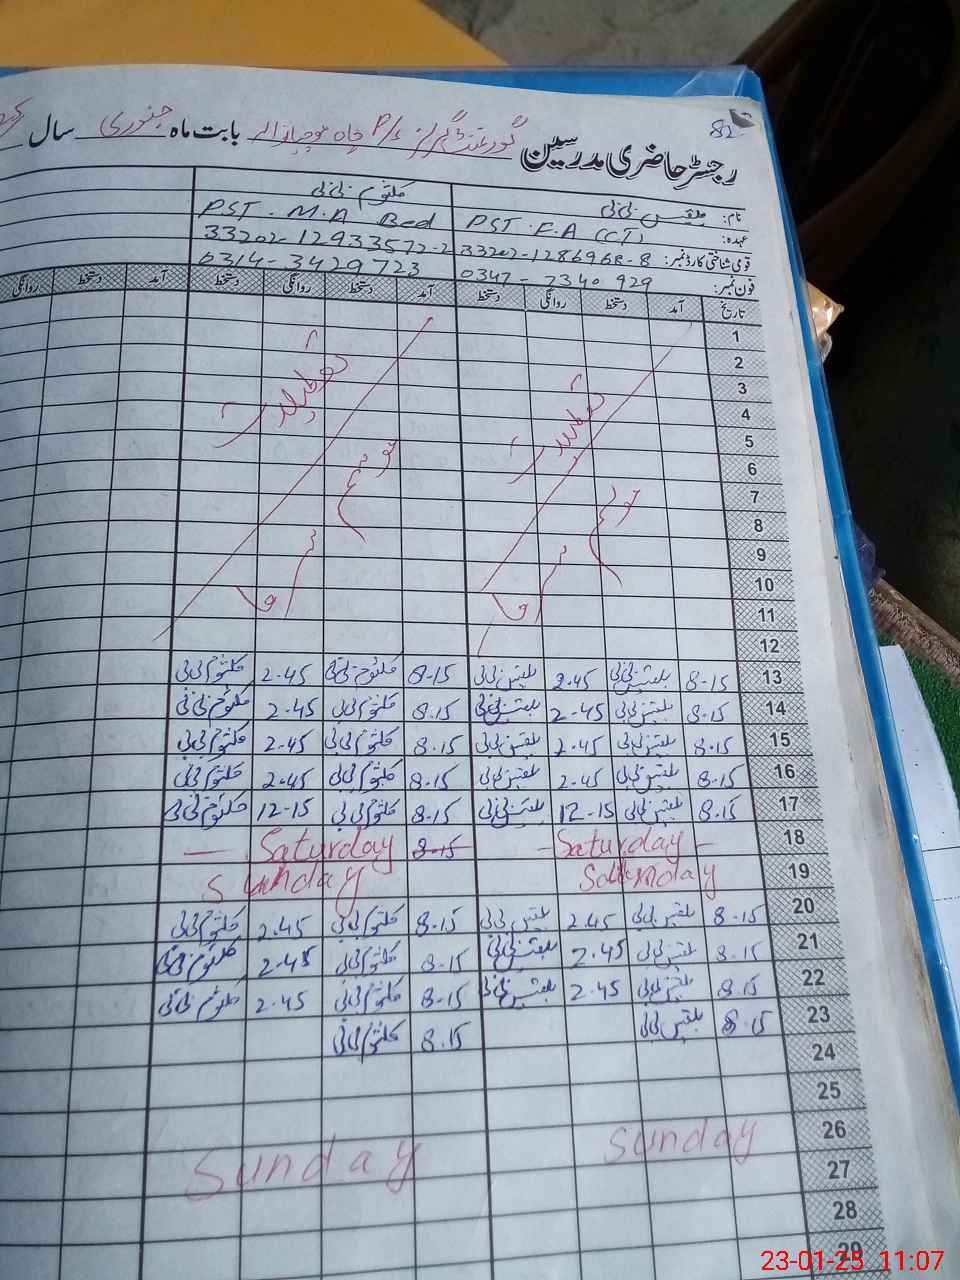 82
رجسٹر حاضری مدرسین گورنمنٹ گرلز P/s چاہ بابت ماہ جنوری سال
نام: بلقیس بی بی کلثوم بی بی
عہدہ: PST . F.A (CT) PST . M.A Bed
قومی شناختی کارڈ نمبر: 33202-1286968-8 33202-12933572-2
فون نمبر: 0347 - 7340 929 0314-3429723
تاریخ آمد دستخط روانگی دستخط آمد دستخط روانگی دستخط آمد دستخط روانگی
1
2
3
4
5
6
7
8
9
10
11
12
تعطیلات موسم سرما تعطیلات موسم سرما
13 8-15 بلقیس بی بی 2.45 بلقیس بی بی 8-15 کلثوم بی بی 2.45 کلثوم بی بی
14 8.15 بلقیس بی بی 2.45 بلقیس بی بی 8.15 کلثوم بی بی 2.45 کلثوم بی بی
15 8.15 بلقیس بی بی 2.45 بلقیس بی بی 8.15 کلثوم بی بی 2.45 کلثوم بی بی
16 8.15 بلقیس بی بی 2.45 بلقیس بی بی 8.15 کلثوم بی بی 2.45 کلثوم بی بی
17 8.15 بلقیس بی بی 12-15 بلقیس بی بی 8.15 کلثوم بی بی 12-15 کلثوم بی بی
18 Saturday 8.15 Saturday
19 Sunday Sunday
20 8.15 بلقیس بی بی 2.45 بلقیس بی بی 8.15 کلثوم بی بی 2.45 کلثوم بی بی
21 8.15 بلقیس بی بی 2.45 بلقیس بی بی 8.15 کلثوم بی بی 2.45 کلثوم بی بی
22 8.15 بلقیس بی بی 2.45 بلقیس بی بی 8.15 کلثوم بی بی 2.45 کلثوم بی بی
23 8.15 بلقیس بی بی 8.15 کلثوم بی بی
24
25
26 Sunday Sunday
27
28
29
23-01-25 11:07